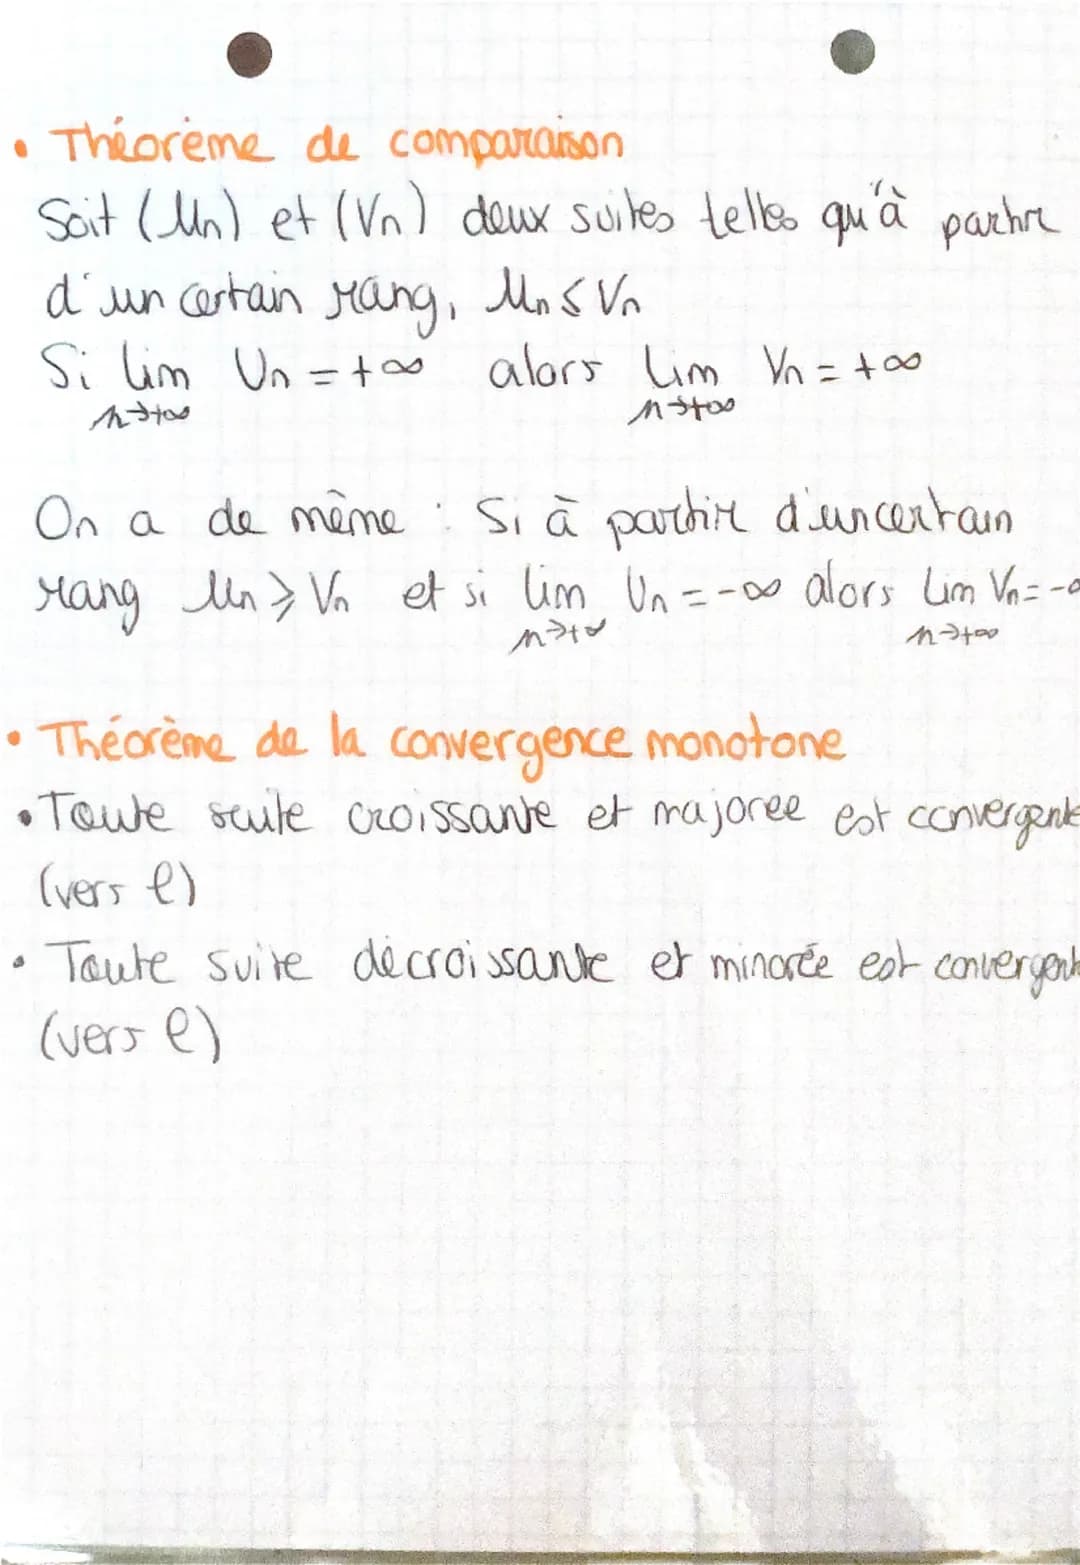 • Théorème de comparaison
Soit (Un) et (Vn) deux suites telles qu'à partir
d'un certain rang, Un ≤ Vn
Si lim Un = +∞ alors lim Vn = +∞
n→+∞ n→+∞
On a de même : Si à partir d'un certain
rang Un ≥ Vn et si lim Un = -∞ alors lim Vn = -∞
n→+∞ n→+∞
• Théorème de la convergence monotone
• Toute suite croissante et majorée est convergente
(vers l)
• Toute suite décroissante et minorée est convergente
(vers l)